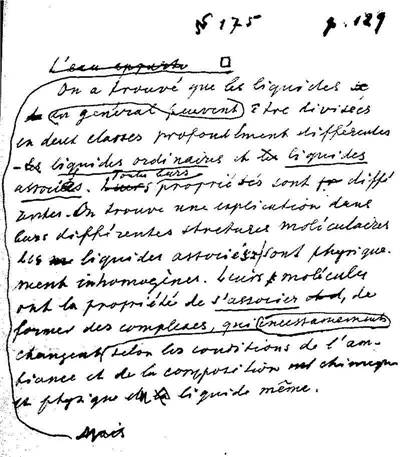 № 175 p. 129
L'eau
On a trouvé que les liquides
en général peuvent être divisées
en deux classes profondément différentes
– liquides ordinaires et liquides
associés. Toute leurs propriétés sont diffé
rentes. On trouve une explication dans
leurs différentes structures moléculaires
Les liquides associés sont physique-
ment inhomogènes. Leurs molécules
ont la propriété de s'associer, de
former des complexes, qui incessamment
changent selon les conditions de l'am-
biance et de la composition chimique
et physique liquide même.
Mais